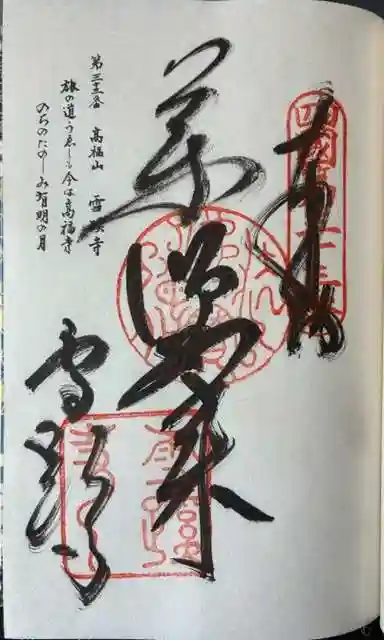 奉納
薬師如来
第三十三番 高福山 雪蹊寺
旅の道うゑしも今は高福寺
のちのたのしみ有明の月
雪蹊寺